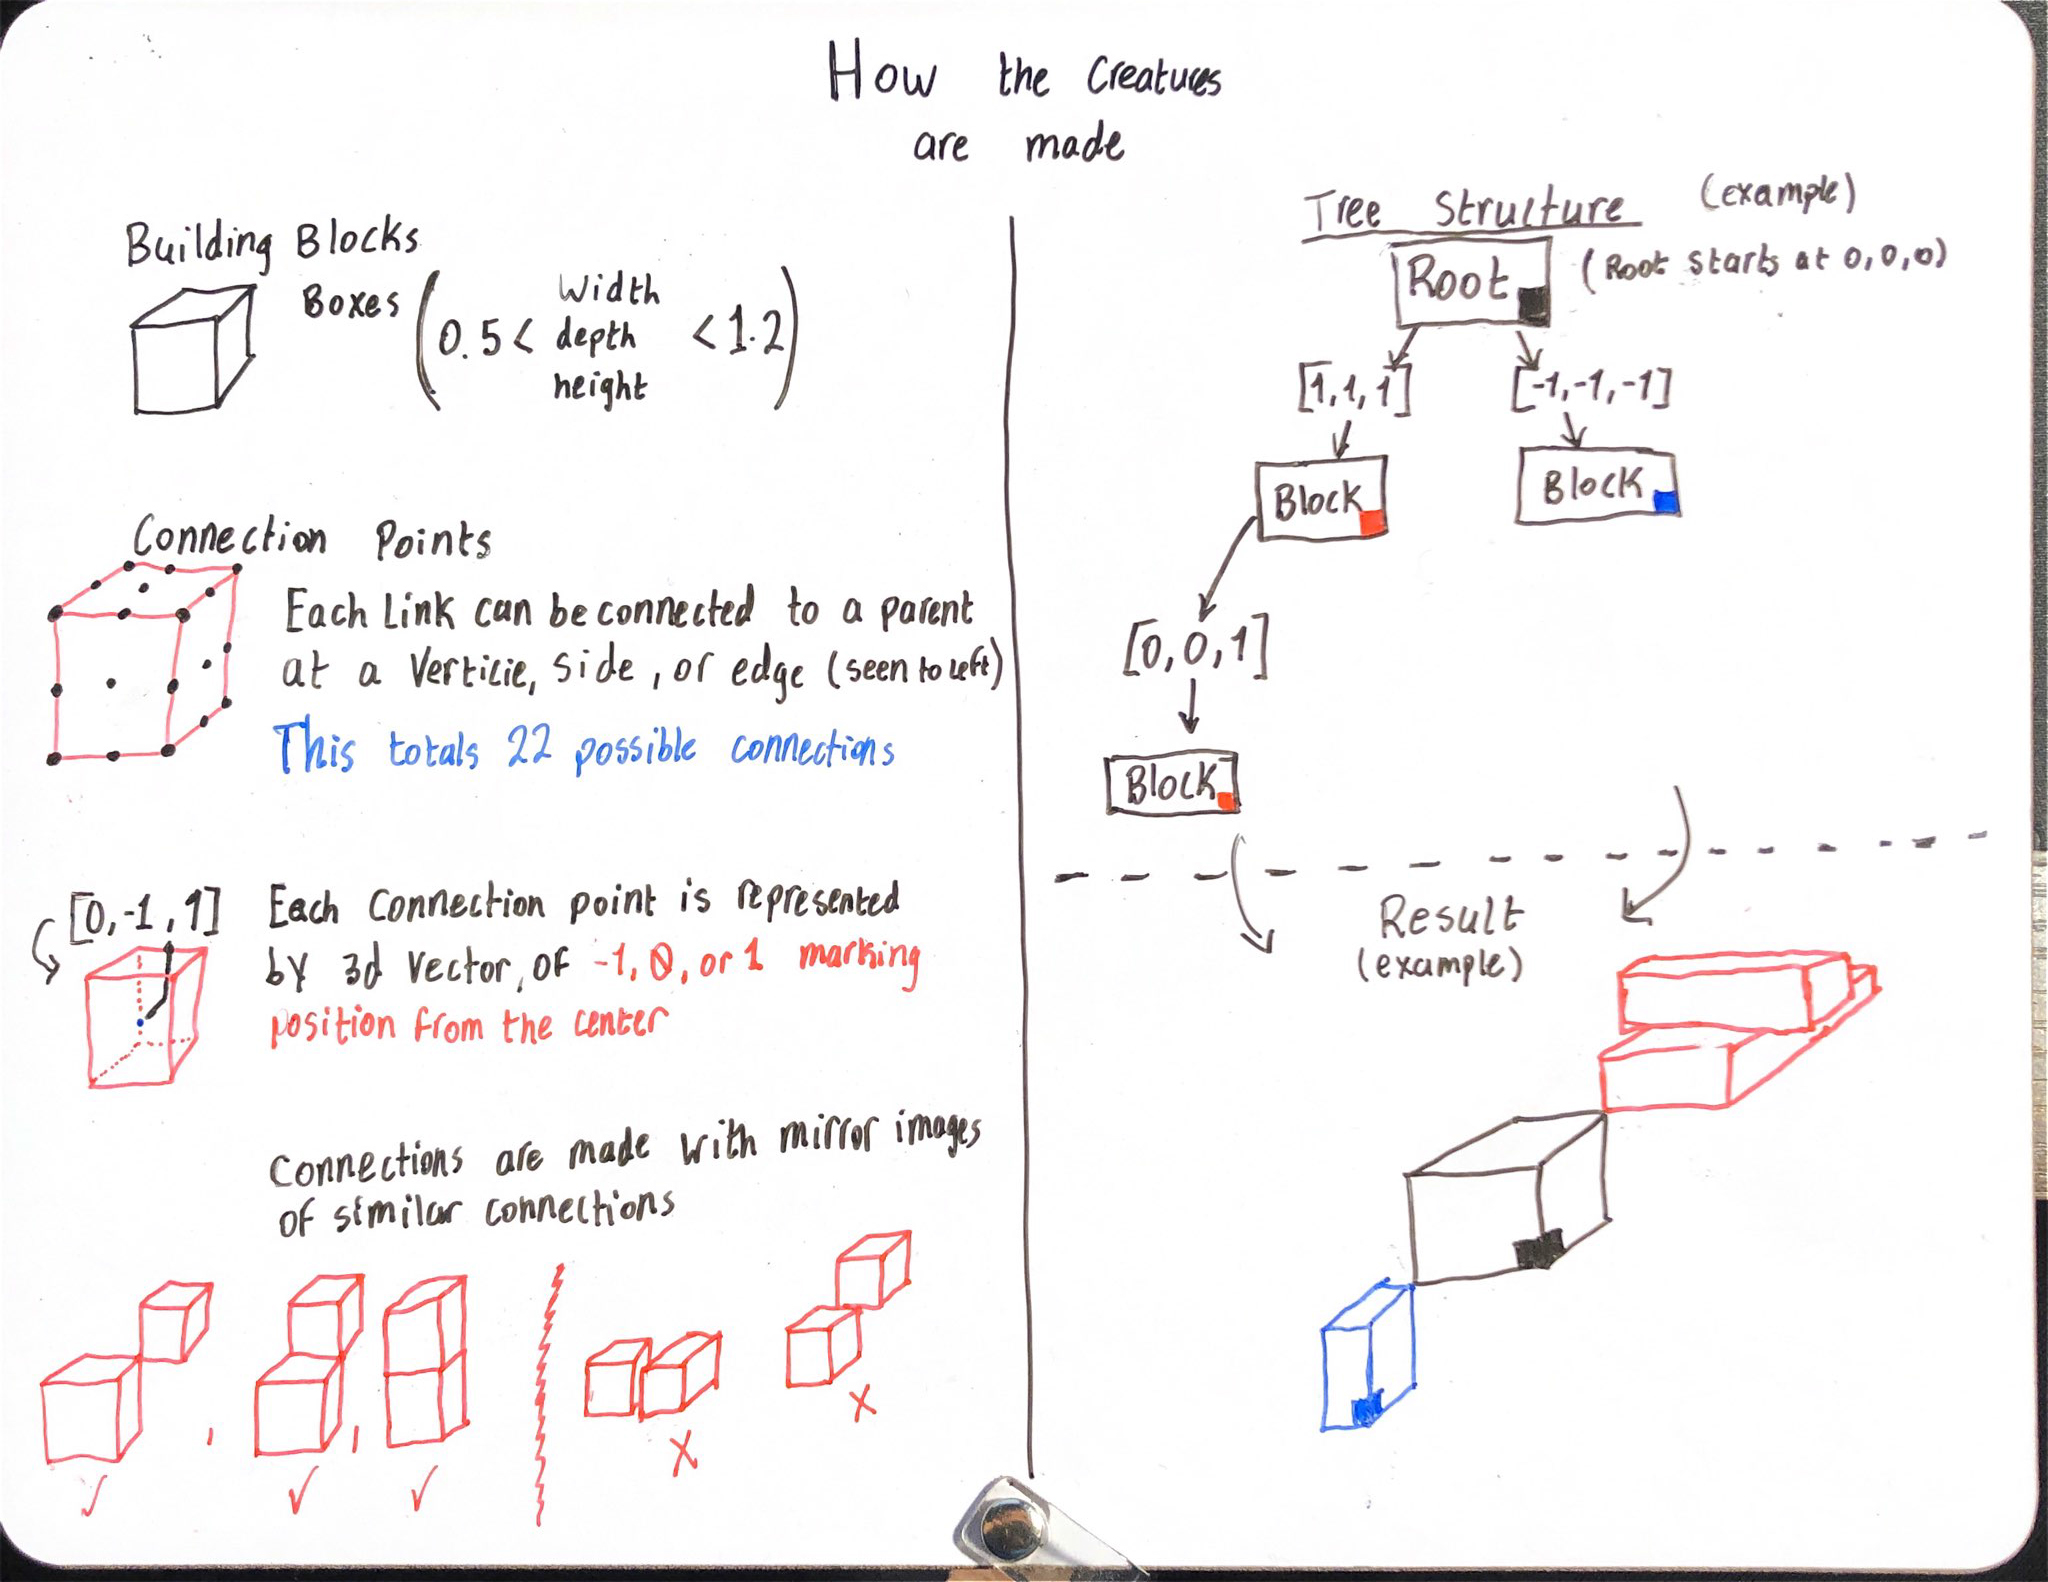 How the Creatures
are made
Building Blocks
Boxes (0.5 < Width depth height < 1.2)
Connection Points
Each Link can be connected to a parent
at a Verticie, side, or edge (seen to left)
This totals 22 possible connections
[0, -1, 1]
Each connection point is represented
by 3d vector, of -1, 0, or 1 marking
position from the center
Connections are made with mirror images
of similar connections
Tree Structure (example)
Root
(Root starts at 0,0,0)
[1, 1, 1]
[-1, -1, -1]
Block
Block
[0, 0, 1]
Block
Result
(example)